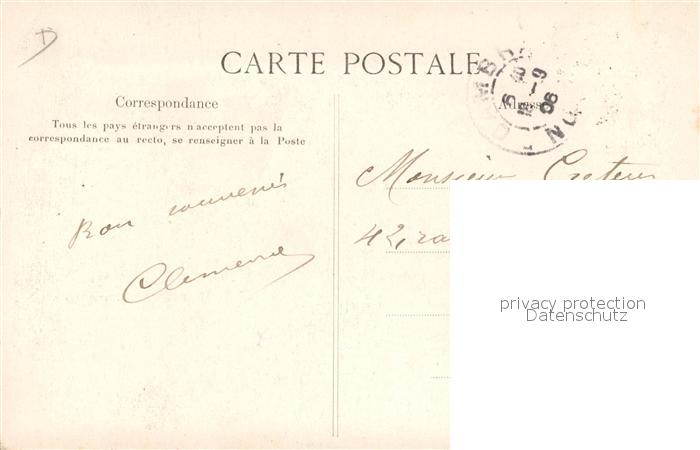 CARTE POSTALE
Correspondance
Tous les pays étrangers n'acceptent pas la
correspondance au recto, se renseigner à la Poste
Adresse
Bon souvenir
Clemence
Monsieur
42, ra
privacy protection
Datenschutz
D
06